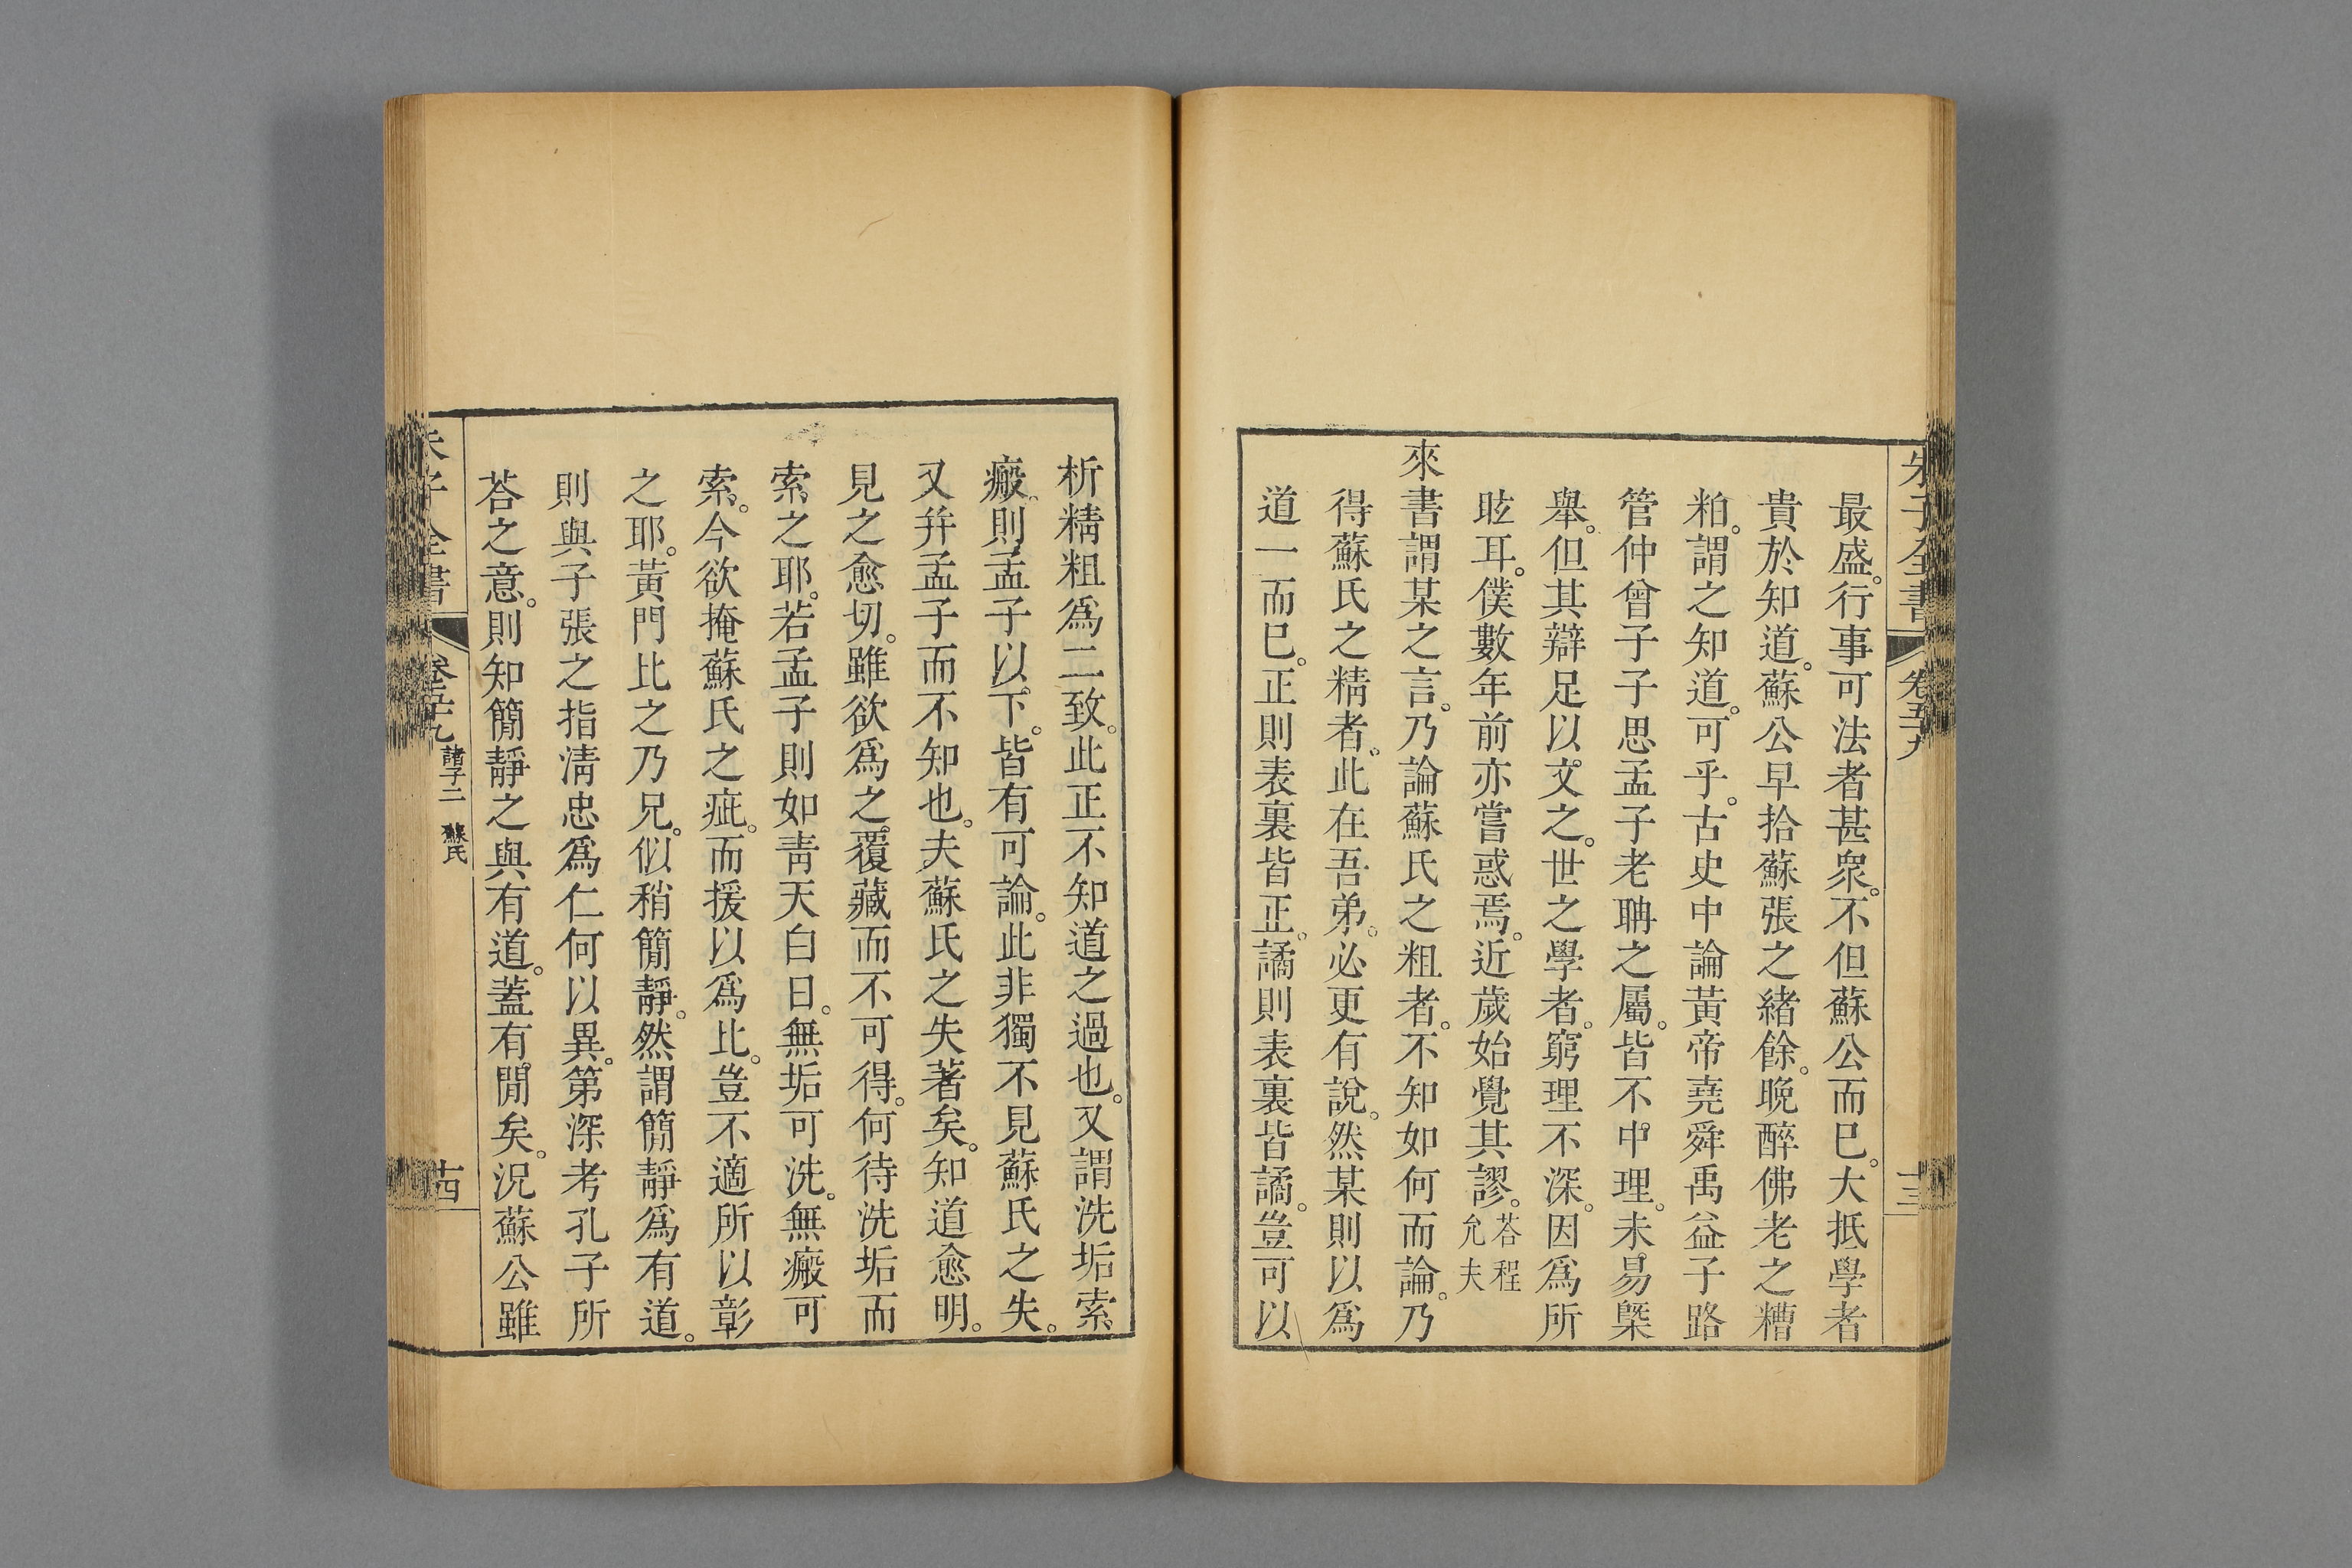 朱子全書 卷五十九 十三
最盛。行事可法者甚衆。不但蘇公而已。大抵學者
貴於知道。蘇公早拾蘇張之緒餘。晩醉佛老之糟
粕。謂之知道。可乎。古史中論黃帝堯舜禹益子路
管仲曾子子思孟子老聃之屬。皆不中理。未易槩
舉。但其辯足以文之。世之學者。窮理不深。因爲所
眩耳。僕數年前亦嘗惑焉。近歲始覺其謬。荅程允夫
來書謂某之言。乃論蘇氏之粗者。不知如何而論。乃
得蘇氏之精者。此在吾弟。必更有說。然某則以爲
道一而已。正則表裏皆正。譎則表裏皆譎。豈可以
析精粗爲二致。此正不知道之過也。又謂洗垢索
瘢。則孟子以下。皆有可論。此非獨不見蘇氏之失。
又幷孟子而不知也。夫蘇氏之失著矣。知道愈明。
見之愈切。雖欲爲之覆藏而不可得。何待洗垢而
索之耶。若孟子則如靑天白日。無垢可洗。無瘢可
索。今欲掩蘇氏之疵。而援以爲比。豈不適所以彰
之耶。黃門比之乃兄。似稍簡靜。然謂簡靜爲有道。
則與子張之指淸忠爲仁何以異。第深考孔子所
荅之意。則知簡靜之與有道。蓋有閒矣。況蘇公雖
朱子全書 卷五十九 諸子二 蘇氏 十四